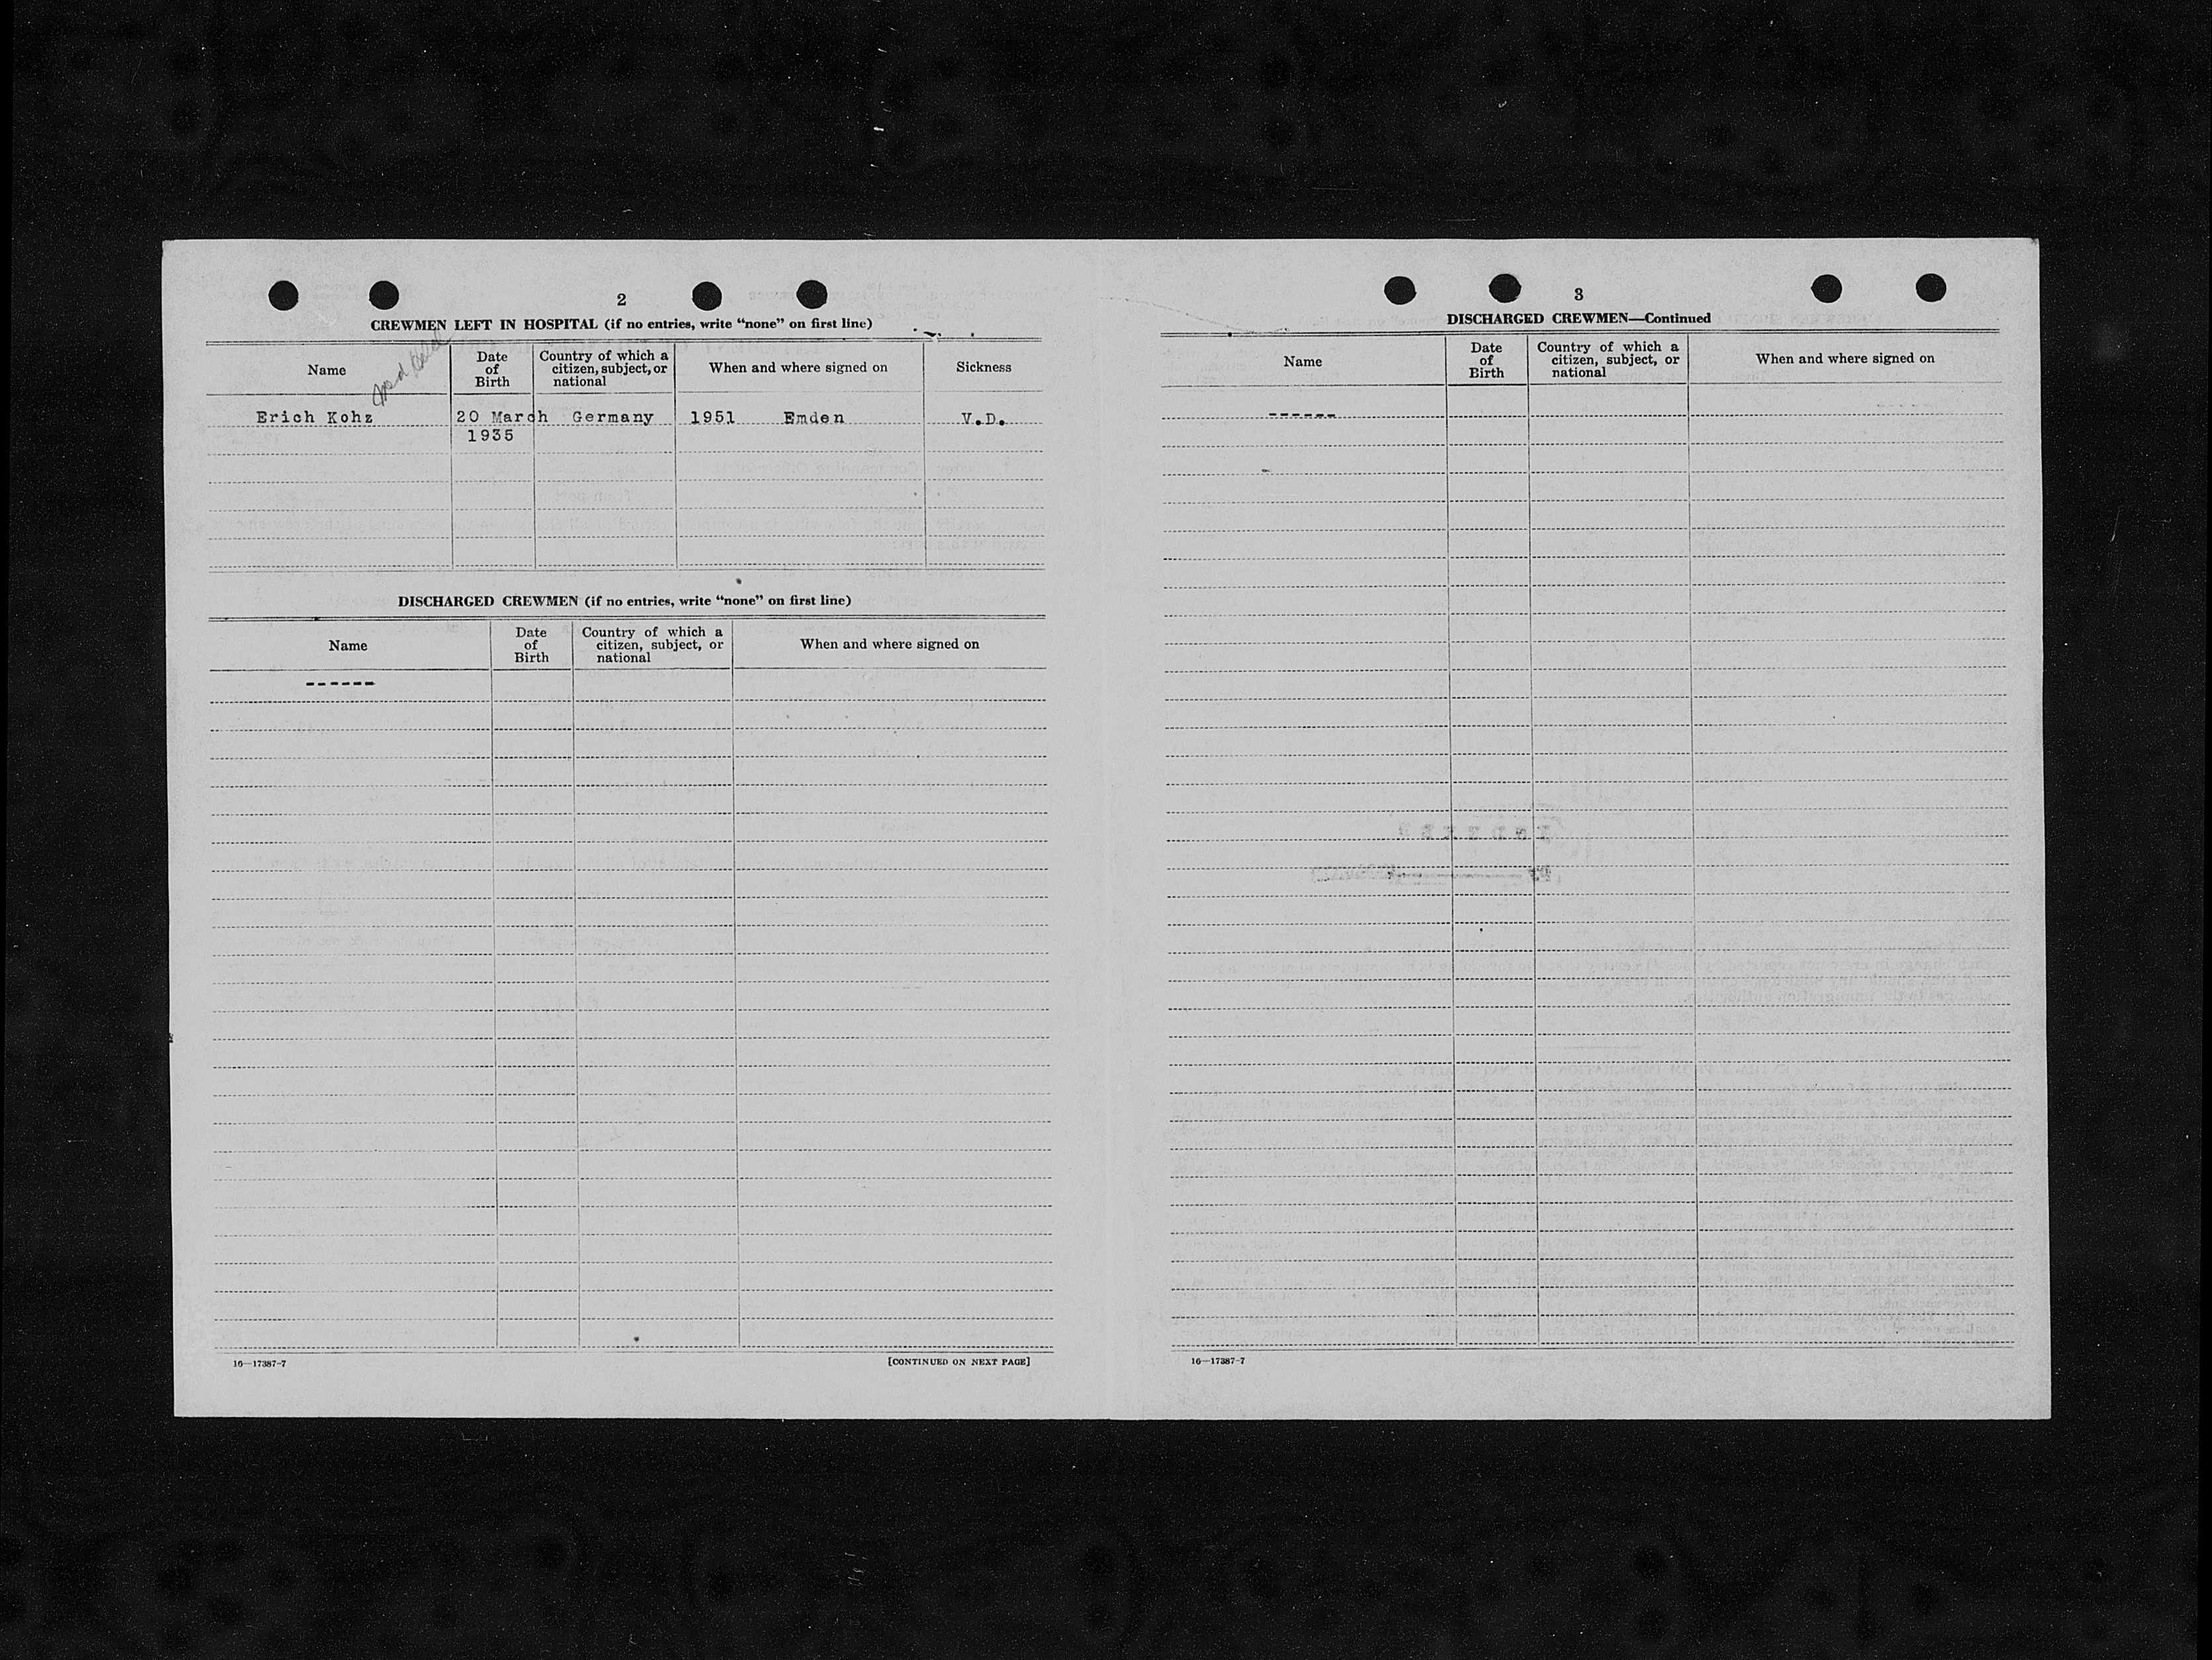 2
CREWMEN LEFT IN HOSPITAL (if no entries, write “none” on first line)
Name
Date of Birth
Country of which a citizen, subject, or national
When and where signed on
Sickness
Erich Kohz 20 March 1935 Germany 1951 Emden V.D.
DISCHARGED CREWMEN (if no entries, write “none” on first line)
Name
Date of Birth
Country of which a citizen, subject, or national
When and where signed on
------
16—17387-7
[CONTINUED ON NEXT PAGE]
3
DISCHARGED CREWMEN—Continued
Name
Date of Birth
Country of which a citizen, subject, or national
When and where signed on
------
16—17387-7